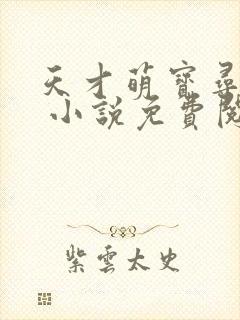 天才萌寶尋
小說免費閱
紫雲太史